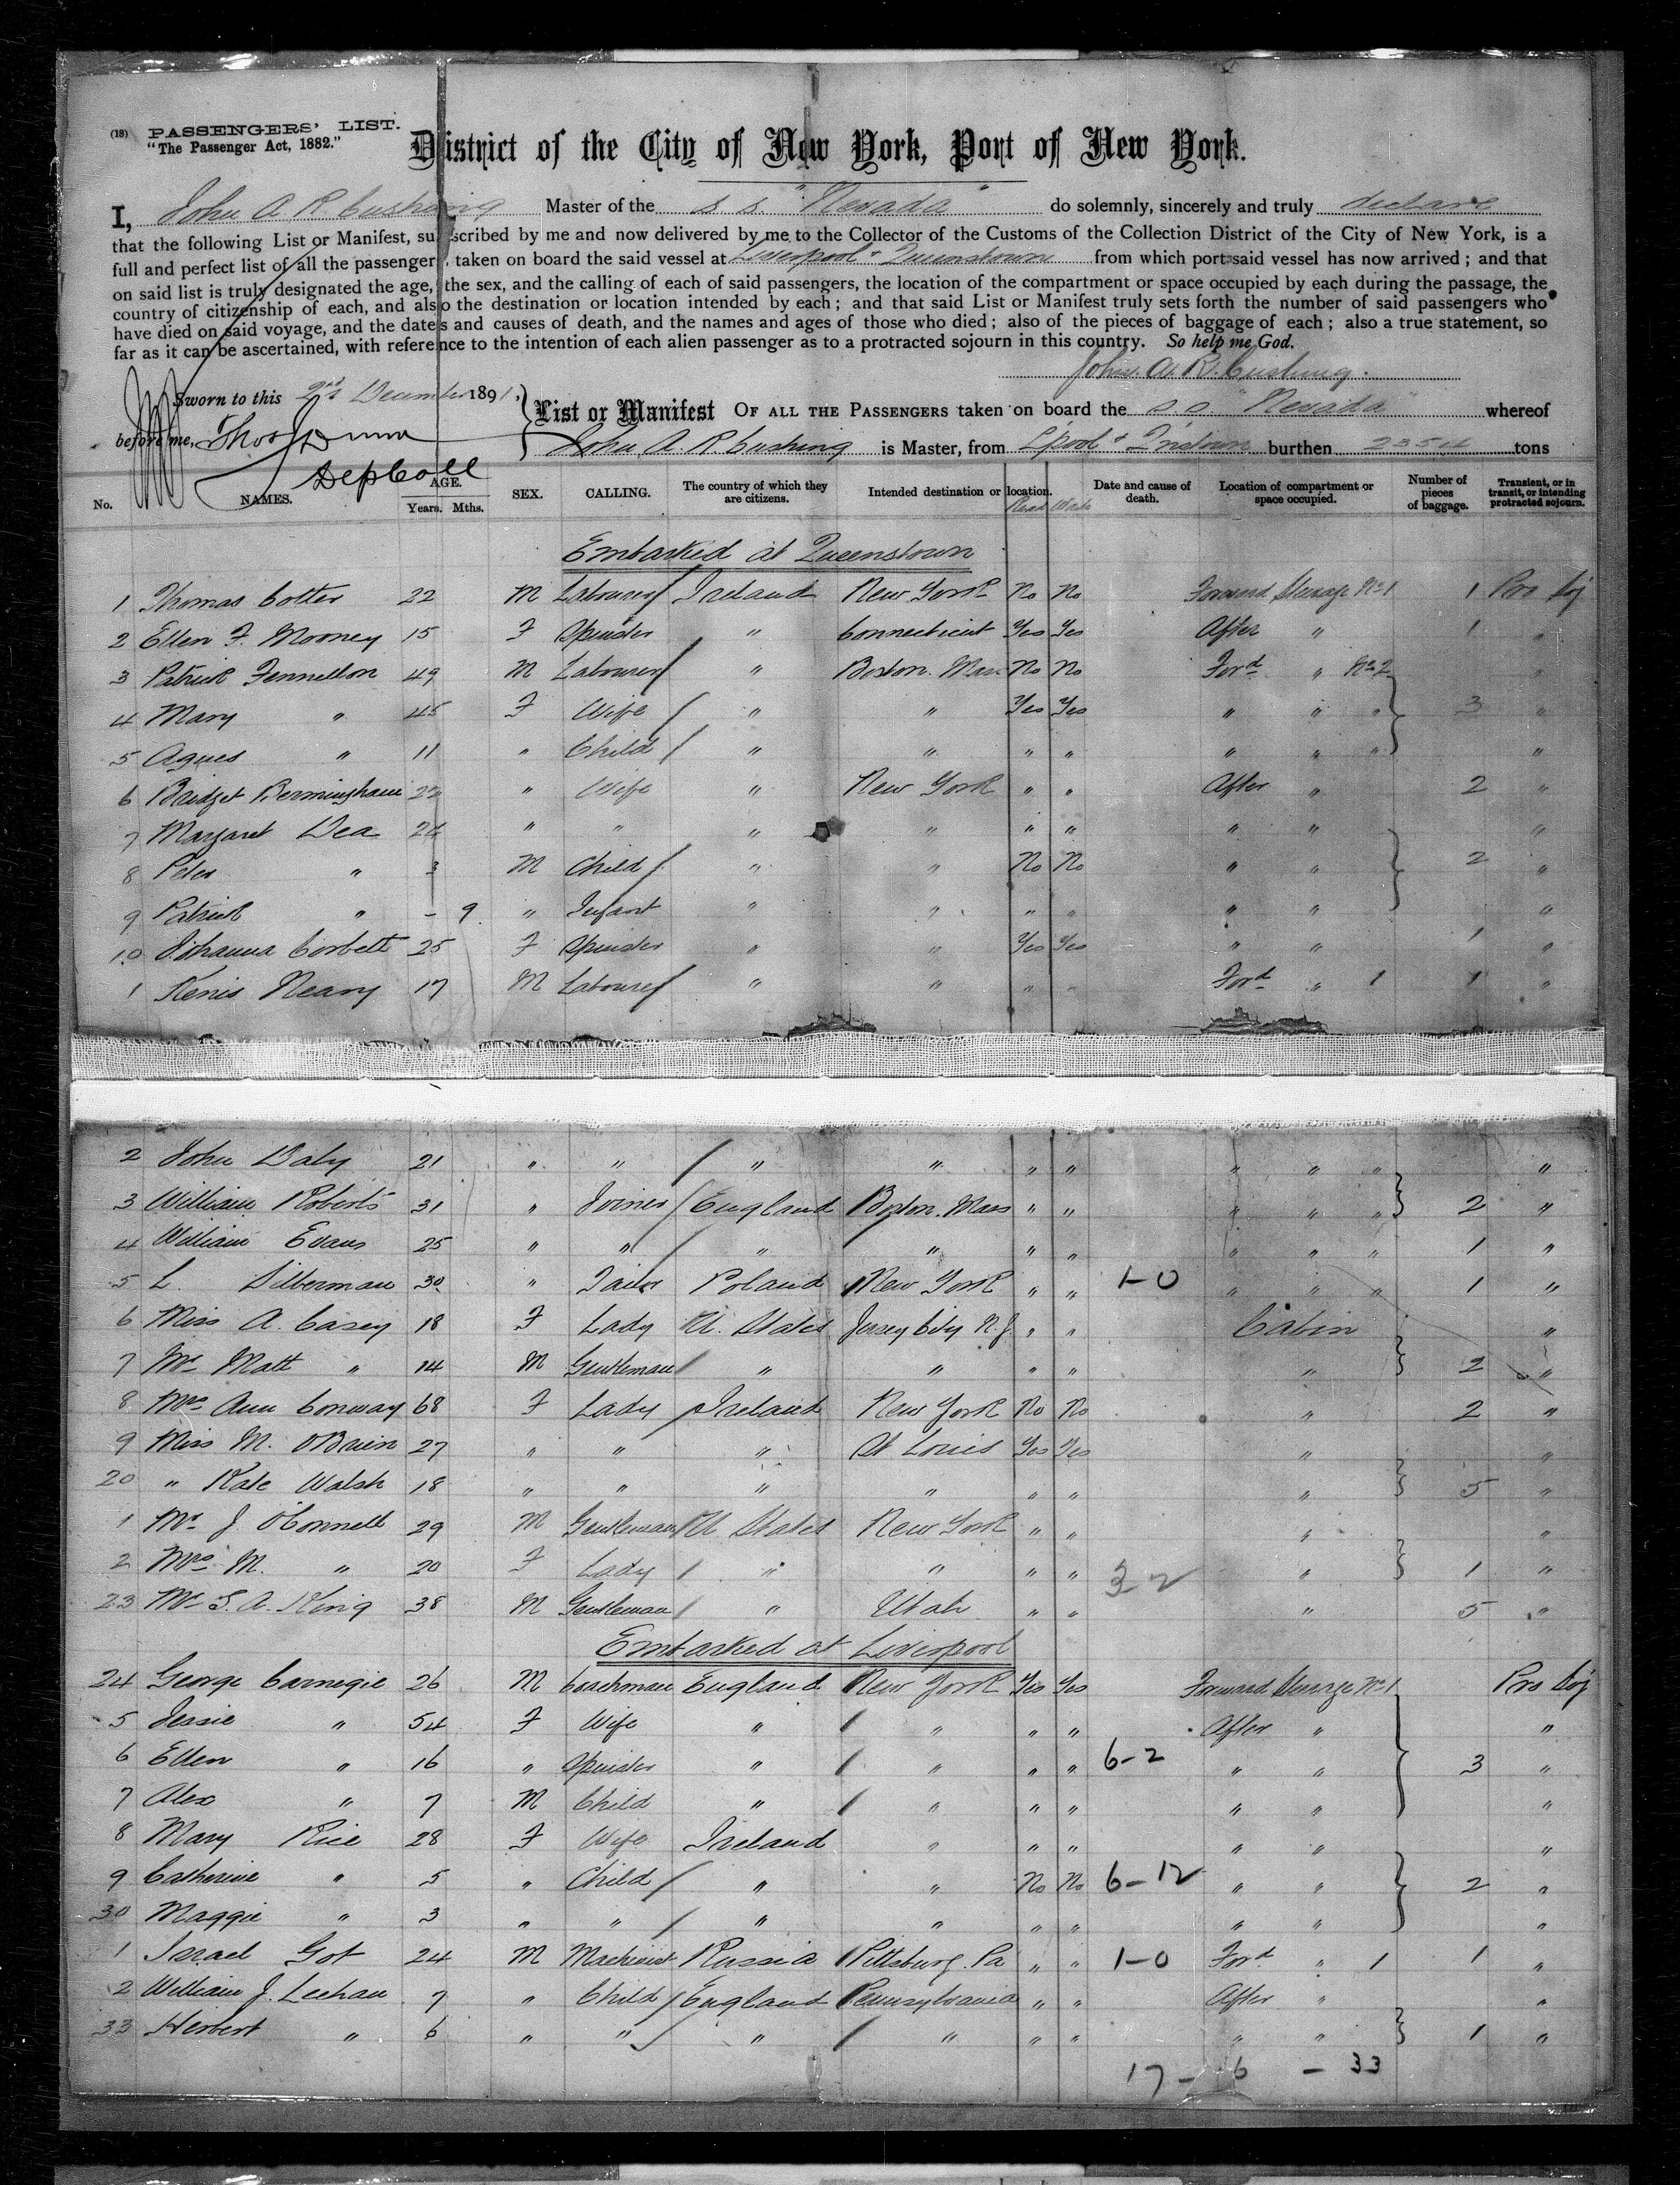 (18) PASSENGERS' LIST.
"The Passenger Act, 1882."
District of the City of New York, Port of New York.
I, John A R Cushing Master of the S.S. "Nevada" do solemnly, sincerely and truly declare
that the following List or Manifest, subscribed by me and now delivered by me to the Collector of the Customs of the Collection District of the City of New York, is a
full and perfect list of all the passengers, taken on board the said vessel at Liverpool & Queenstown from which port said vessel has now arrived; and that
on said list is truly designated the age, the sex, and the calling of each of said passengers, the location of the compartment or space occupied by each during the passage, the
country of citizenship of each, and also the destination or location intended by each; and that said List or Manifest truly sets forth the number of said passengers who
have died on said voyage, and the dates and causes of death, and the names and ages of those who died; also of the pieces of baggage of each; also a true statement, so
far as it can be ascertained, with reference to the intention of each alien passenger as to a protracted sojourn in this country. So help me God.
John. A. R. Cushing.
Sworn to this 2nd December 1891,
before me, Thos Dunn
Dep Coll
List or Manifest OF ALL THE PASSENGERS taken on board the S.S. "Nevada" whereof
John A. R Cushing is Master, from L'pool & Q'nstown burthen 2354 tons
No. NAMES. AGE. Years. Mths. SEX. CALLING. The country of which they are citizens. Intended destination or location. Read Write Date and cause of death. Location of compartment or space occupied. Number of pieces of baggage. Transient, or in transit, or intending protracted sojourn.
Embarked at Queenstown
1 Thomas Cotter 22 M Labourer Ireland New York No No Forward Steerage No 1 1 Pro Soj
2 Ellen F. Mooney 15 F Spinster " Connecticut Yes Yes After " 1 "
3 Patrick Fennellon 49 M Labourer " Boston. Mass No No Ford " No 2 "
4 Mary " 45 F Wife " " Yes Yes " " " 3 "
5 Agnes " 11 " Child " " " " " " " "
6 Bridget Bermingham 22 " Wife " New York " " After " 2 "
7 Margaret Dea 24 " " " " " " " " "
8 Peter " 3 M Child " " No No " " 2 "
9 Patrick " - 9 " Infant " " " " " " "
10 Johanna Corbett 25 F Spinster " " Yes Yes " " 1 "
1 Kenis Neary 17 M Labourer " " " " Ford " 1 1 "
2 John Daly 21 " " " " " " " " " "
3 William Roberts 31 " Joiner England Boston. Mass " " " " " 2 "
4 William Evans 25 " " " " " " " " " 1 "
5 L. Silberman 30 " Tailor Poland New York " " 1-0 " " " 1 "
6 Miss A. Casey 18 F Lady U. States Jersey City N.J. " " Cabin "
7 Mr Matt " 14 M Gentleman " " " " " 2 "
8 Mrs Ann Conway 68 F Lady Ireland New York No No " 2 "
9 Miss M. O'Brien 27 " " " St Louis Yes Yes " "
20 " Kate Walsh 18 " " " " " " " 5 "
1 Mr J O'Connell 29 M Gentleman U States New York " " " "
2 Mrs M. " 20 F Lady " " " " 3 2 " 1 "
23 Mr S. A. King 38 M Gentleman " Utah " " " 5 "
Embarked at Liverpool
24 George Carnegie 26 M Coachman England New York Yes Yes Forward Steerage No 1 Pro Soj
5 Jessie " 54 F Wife " " " " After " "
6 Ellen " 16 " Spinster " " " " 6-2 " " 3 "
7 Alex " 7 M Child " " " " " " "
8 Mary Rice 28 F Wife Ireland " " " " " "
9 Catherine " 5 " Child " " No No 6-12 " " 2 "
30 Maggie " 3 " " " " " " " " "
1 Israel Got 24 M Machinist Russia Pittsburg. Pa " " 1-0 Ford " 1 1 "
2 William J. Leehan 7 " Child England Pennsylvania " " After " "
33 Herbert " 6 " " " " " " " " 1 "
17 - 6 - 33